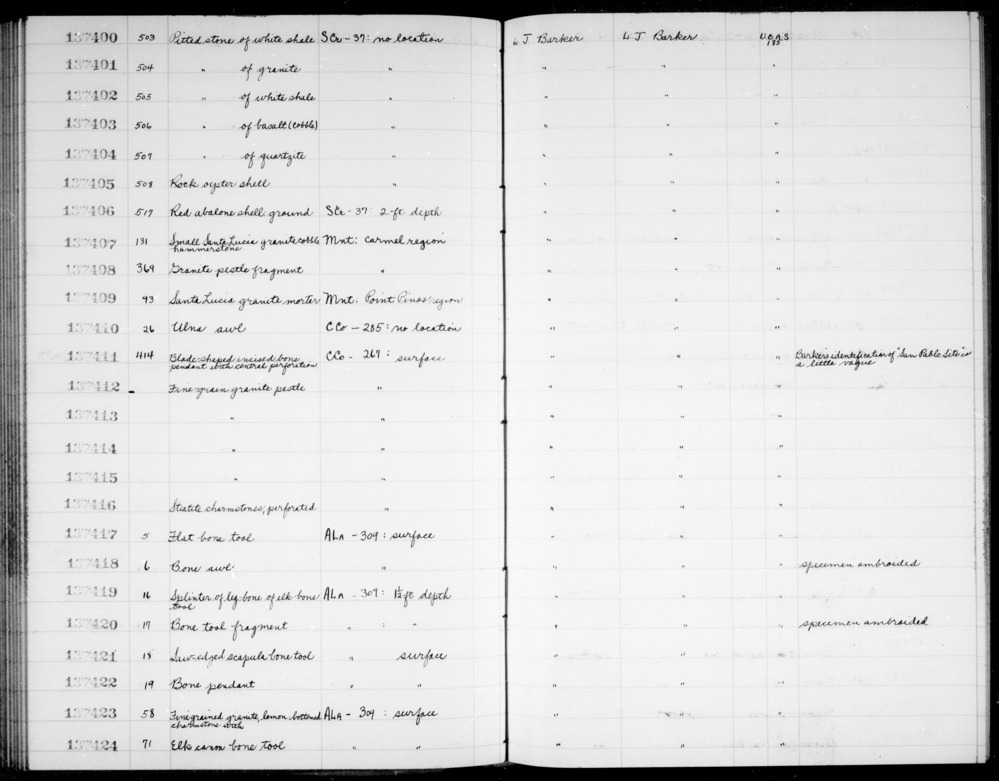 137400 503 Pitted stone of white shale SCr-37: no location L J Barker L J Barker U.C.A.S 185
137401 504 " of granite " " " "
137402 505 " of white shale " " " "
137403 506 " of basalt (cobble) " " " "
137404 507 " of quartzite " " " "
137405 508 Rock oyster shell " " " "
137406 517 Red abalone shell ground SCr-37: 2-ft depth " " "
137407 131 Small Santa Lucia granite cobble Mnt: Carmel region " " "
hammerstone
137408 369 Granite pestle fragment " " " "
137409 93 Santa Lucia granite morter Mnt: Point Pinos region " " "
137410 26 Ulna awl CCo-285: no location " " "
137411 414 Blade-shaped incised bone CCo-267: surface " " " Barker's identification of "San Pablo Site" is
pendant with central perforation a little vague
137412 - Fine-grain granite pestle " " "
137413 " " " " "
137414 " " " " "
137415 " " " " "
137416 Steatite charmstones, perforated " " " "
137417 5 Flat bone tool ALA-309: surface " " "
137418 6 Bone awl " " " " specimen ambroided
137419 16 Splinter of leg-bone of elk-bone ALA-309: 1½ ft depth " " "
tool
137420 17 Bone tool fragment " : " " " " specimen ambroided
137421 18 Saw-edged scapula bone tool " surface " " "
137422 19 Bone pendant " " " " "
137423 58 Fine grained granite, lemon-bottomed ALA-309: surface " " "
charmstone with
137424 71 Elk canon bone tool " " " " "